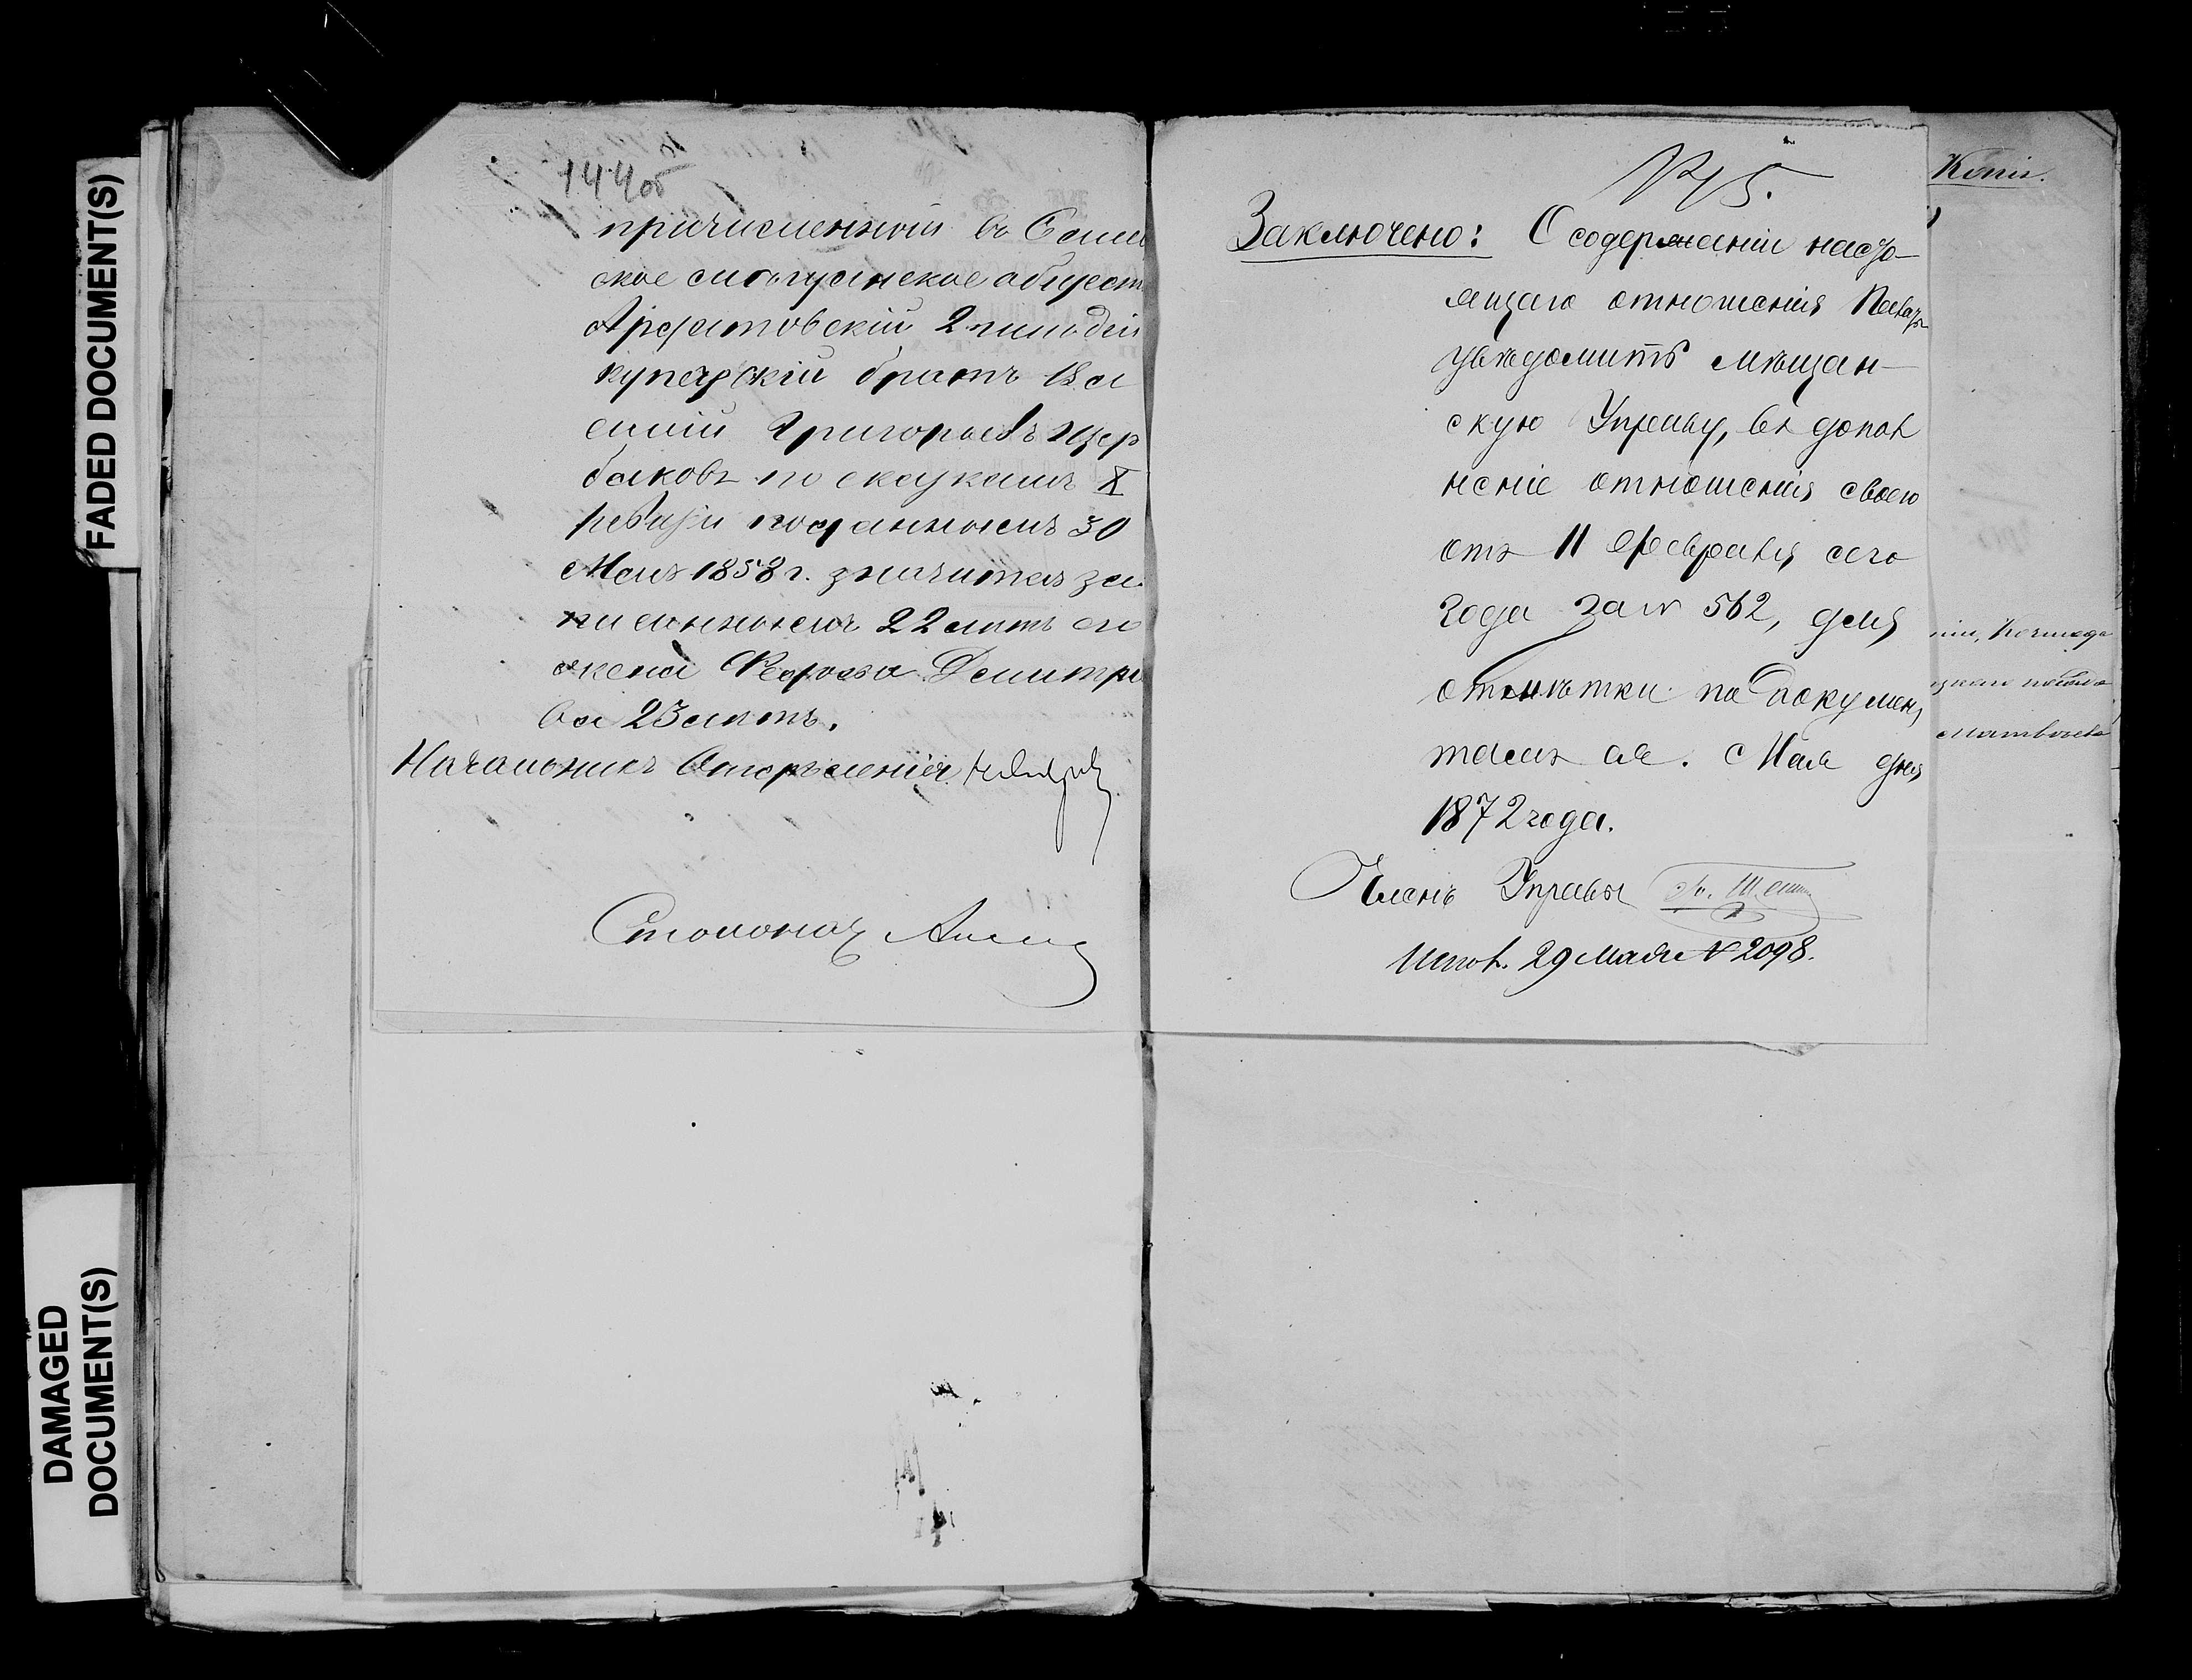 FADED DOCUMENT(S)
DAMAGED
DOCUMENT(S)
144об
причисленный въ Сама
ское мѣщанское общест
Ардатовскій 2 гильдіи
купеческій братъ Ва
силій Григорьевъ Щер
баковъ по сказкамъ X
ревизіи поданнымъ 30
Мая 1858 г. значится за
писаннымъ 22 лѣтъ его
жена Федосья Дмитрі
ва 23 лѣтъ.
Начальникъ Отдѣленія
Столонач
145.
Заключено: О содержаніи насто-
ящаго отношенія
увѣдомить мѣщан-
скую Управу, въ допол
неніе отношенія своего
отъ 11 Февраля сего
года за № 562, для
отмѣтки по докумен,
тамъ ея. Мая дня
1872 года.
Членъ Управы
Испол. 29 Мая № 2098.
Копія.